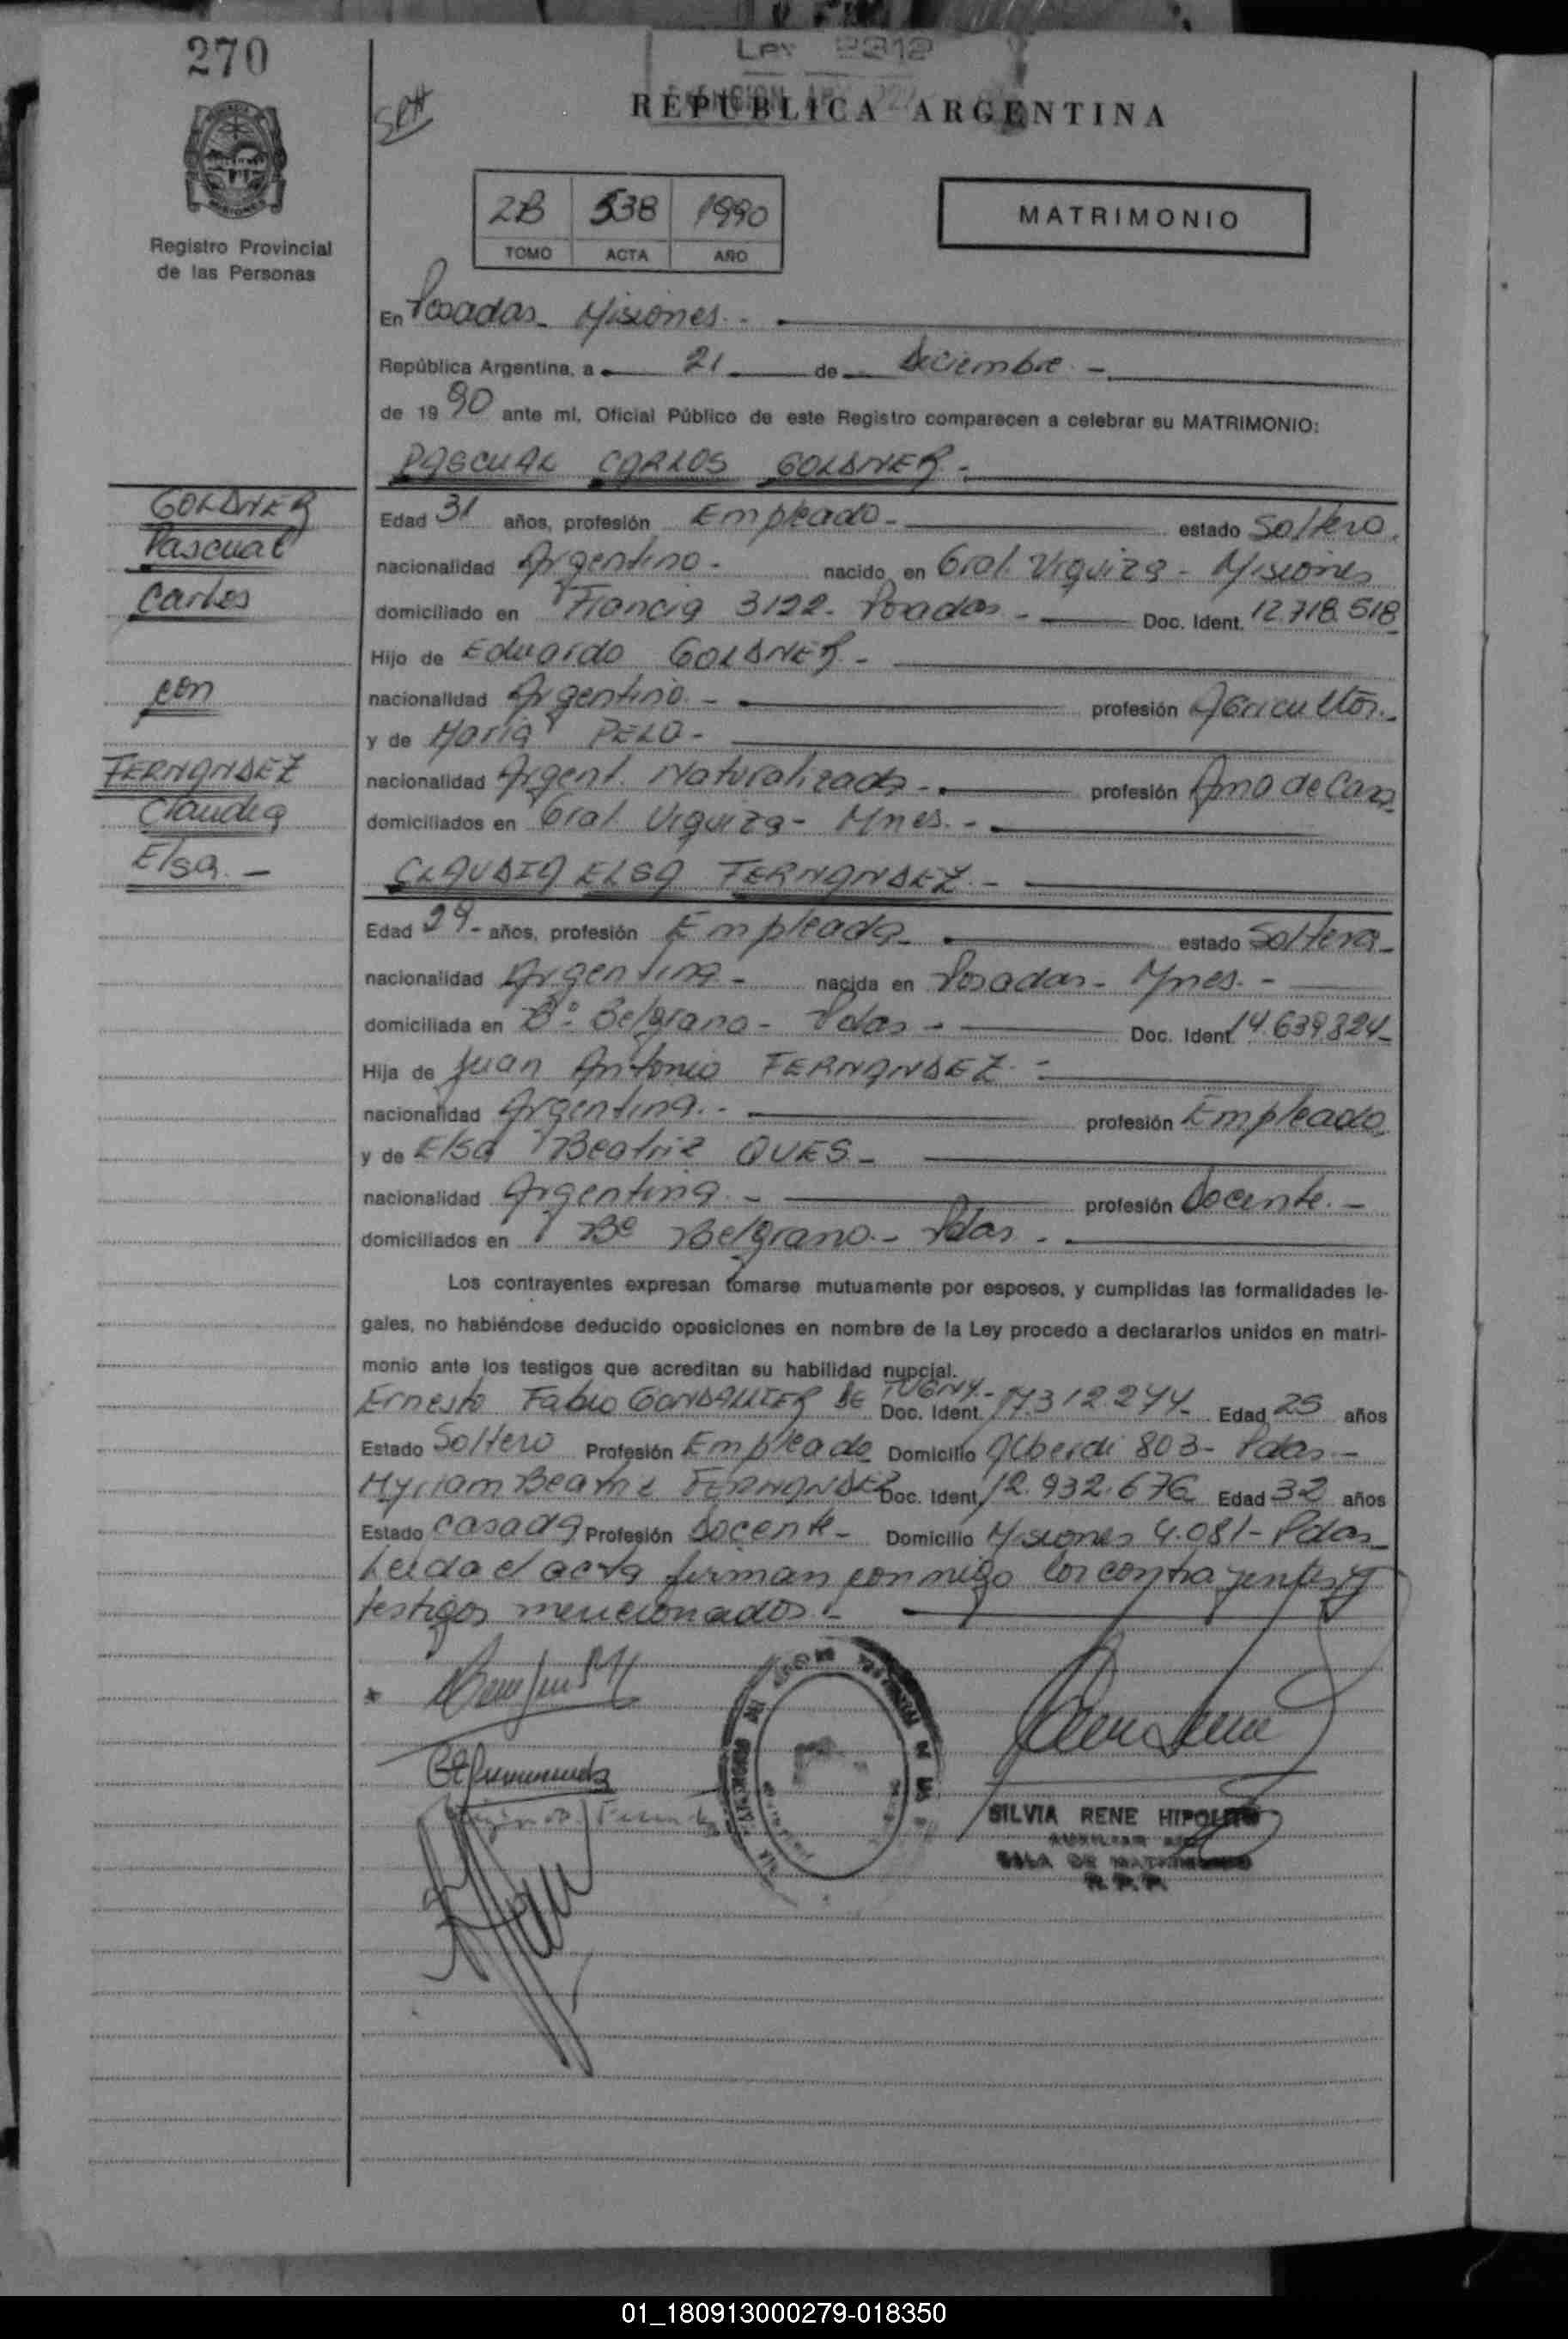 270
Ley 2312
REPUBLICA ARGENTINA
Registro Provincial
de las Personas
2B 538 1990
TOMO ACTA AÑO
MATRIMONIO
En Posadas - Misiones.-
República Argentina, a 21 de Diciembre.-
de 1990 ante mí, Oficial Público de este Registro comparecen a celebrar su MATRIMONIO:
PASCUAL CARLOS GOLDNER.-
GOLDNER
Pascual
Carlos
con
FERNANDEZ
Claudia
Elsa.-
Edad 31 años, profesión Empleado- estado Soltero.
nacionalidad Argentino- nacido en Gral. Urquiza - Misiones
domiciliado en Francia 3122- Posadas- Doc. Ident. 12.718.518
Hijo de Eduardo GOLDNER-
nacionalidad Argentino- profesión Agricultor.-
y de María PELO-
nacionalidad Argent. Naturalizada- profesión Ama de Casa
domiciliados en Gral Urquiza- Mnes.-
CLAUDIA ELSA FERNANDEZ.-
Edad 29- años, profesión Empleada- estado Soltera-
nacionalidad Argentina- nacida en Posadas- Mnes.-
domiciliada en Bº Belgrano- Pdas- Doc. Ident. 14.639.824-
Hija de Juan Antonio FERNANDEZ-
nacionalidad Argentina.- profesión Empleado
y de Elsa Beatriz QUES-
nacionalidad Argentina- profesión Docente.-
domiciliados en Bº Belgrano- Pdas-
Los contrayentes expresan tomarse mutuamente por esposos, y cumplidas las formalidades le-
gales, no habiéndose deducido oposiciones en nombre de la Ley procedo a declararlos unidos en matri-
monio ante los testigos que acreditan su habilidad nupcial.
Ernesto Fabio GONDALLIER DE TUGNY- Doc. Ident. 17.312.244- Edad 25 años
Estado Soltero Profesión Empleado Domicilio Alberdi 803- Pdas-
Myriam Beatriz FERNANDEZ Doc. Ident. 12.932.676 Edad 32 años
Estado Casada Profesión Docente- Domicilio Misiones 4.081- Pdas
Leida el acta firman conmigo los contrayentes y
testigos mencionados.-
SILVIA RENE HIPOLITO
SALA DE MATRIMONIO
R.P.P.
01_180913000279-018350